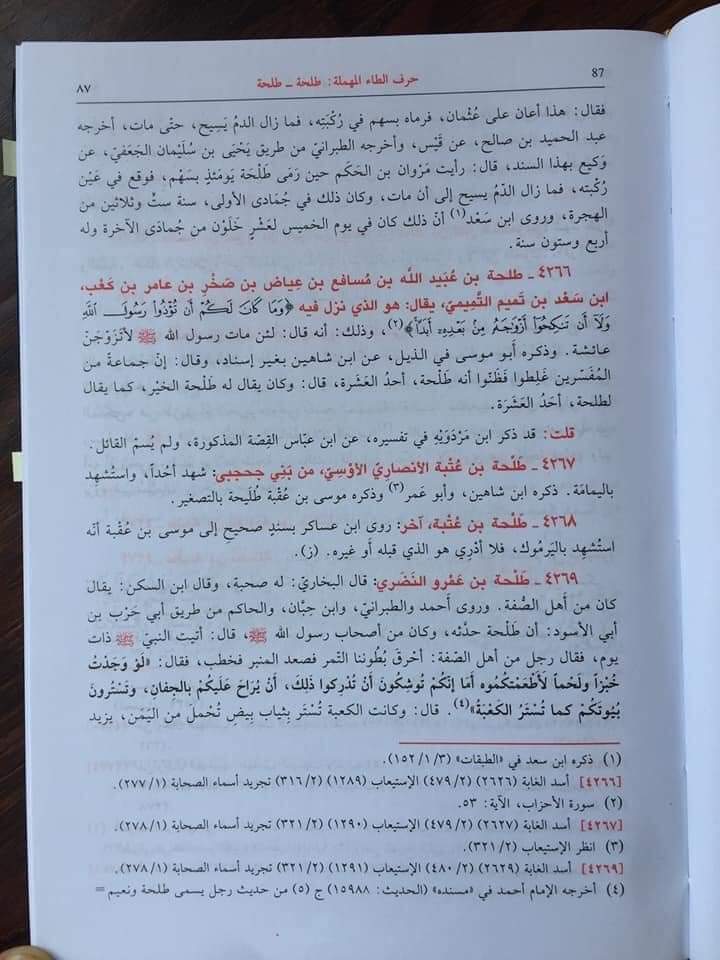 87
حرف الطاء المهملة: طلحة ـ طلحة
٨٧
فقال: هذا أعان على عُثْمان، فرماه بسهم في رُكْبَتِه، فما زال الدمُ يَسِيح، حتّى مات، أخرجه
عبد الحميد بن صالح، عن قَيْس، وأخرجه الطبرانيّ من طريق يَحْيَى بن سُليْمان الجَعفيّ، عن
وَكيع بهذا السند، قال: رأيت مَرْوان بن الحَكَم حين رَمَى طَلْحَة يَومَئذٍ بسَهْمٍ، فوقع في عَيْن
رُكْبته، فما زال الدّمُ يسيح إلى أن مات، وكان ذلك في جُمَادى الأولى، سنة ستٌ وثلاثين من
الهجرة، وروى ابن سَعْد(١) أنّ ذلك كان في يوم الخميس لعَشْرٍ خَلَوْن من جُمَادَى الآخرة وله
أربع وستون سنة.
٤٢٦٦ ـ طلحة بن عُبَيد اللّه بن مُسافع بن عِياض بن صَخْرِ بن عامر بن كَعْب،
ابن سَعْد بن تَمِيم التَّمِيميّ، يقال: هو الذي نزل فيه ﴿وَمَا كَانَ لَكُمْ أَن تُؤْذُوا۟ رَسُولَ اللَّهِ
وَلَا أَن تَنكِحُوٓا۟ أَزْوَٰجَهُ مِنۢ بَعْدِهِۦٓ أَبَدًا﴾(٢)، وذلك: أنه قال: لئن مات رسول الله ﷺ لأتَزَوّجَنّ
عائشة. وذكره أبو موسى في الذيل، عن ابن شاهين بغير إسناد، وقال: إنّ جماعةً من
المُفَسّرين غَلِطوا فظَنّوا أنه طَلْحة، أحدُ العَشَرة، قال: وكان يقال له طَلْحة الخيْر، كما يقال
لطلحة، أحَدُ العَشَرَة.
قلت: قد ذكر ابن مَرْدَوَيْهِ في تفسيره، عن ابن عبّاس القِصّة المذكورة، ولم يُسمّ القائل.
٤٢٦٧ ـ طَلْحة بن عُتْبة الأنصاريّ الأوْسيّ، من بَنِي جحجبى: شهد أحُداً، واستُشهد
باليمامة. ذكره ابن شاهين، وأبو عمر(٣) وذكره موسى بن عُقْبة طُلَيحة بالتصغير.
٤٢٦٨ ـ طَلْحة بن عُتْبة، آخر: روى ابن عساكر بسندٍ صحيح إلى موسى بن عُقْبة أنّه
استُشهد باليَرمُوك، فلا أدْرِي هو الذي قبله أو غيره. (ز).
٤٢٦٩ ـ طَلْحة بن عَمْرو النَضَري: قال البخاريّ: له صحبة، وقال ابن السكن: يقال
كان من أهل الصُّفة. وروى أحمد والطبرانيّ، وابن حِبّان، والحاكم من طريق أبي حَرْب بن
أبي الأسود: أن طَلْحة حدّثه، وكان من أصحاب رسول الله ﷺ، قال: أتيت النبيّ ﷺ ذات
يوم، فقال رجل من أهل الصّفة: أحرَقَ بُطوننا التّمر فصعد المنبر فخطب، فقال: «لَوْ وَجَدْتُ
خُبْزاً ولَحْماً لأطْعَمْتكُموه أمَا إنّكُم تُوشِكُونَ أنْ تُدْرِكوا ذَلِكَ، أنْ يُرَاحَ عَلَيكُم بالجِفانِ، وَتَسْتُرونَ
بُيُوتَكُم كما تُسْتَرُ الكَعْبَةُ»(٤). قال: وكانت الكعبة تُسْتَر بثياب بيضٍ تُحْملُ من اليَمَن، يزيد
(١) ذكره ابن سعد في «الطبقات» (٣/ ١/ ١٥٢).
[٤٢٦٦] أسد الغابة (٢٦٢٦) (٢/ ٤٧٩) الإستيعاب (١٢٨٩) (٢/ ٣١٦) تجريد أسماء الصحابة (١/ ٢٧٧).
(٢) سورة الأحزاب، الآية: ٥٣.
[٤٢٦٧] أسد الغابة (٢٦٢٧) (٢/ ٤٧٩) الإستيعاب (١٢٩٠) (٢/ ٣٢١) تجريد أسماء الصحابة (١/ ٢٧٨).
(٣) انظر الإستيعاب (٢/ ٣٢١).
[٤٢٦٩] أسد الغابة (٢٦٢٩) (٢/ ٤٨٠) الإستيعاب (١٢٩١) (٢/ ٣٢١) تجريد أسماء الصحابة (١/ ٢٧٨).
(٤) أخرجه الإمام أحمد في «مسنده» (الحديث: ١٥٩٨٨) ج (٥) من حديث رجل يسمى طلحة ونعيم =